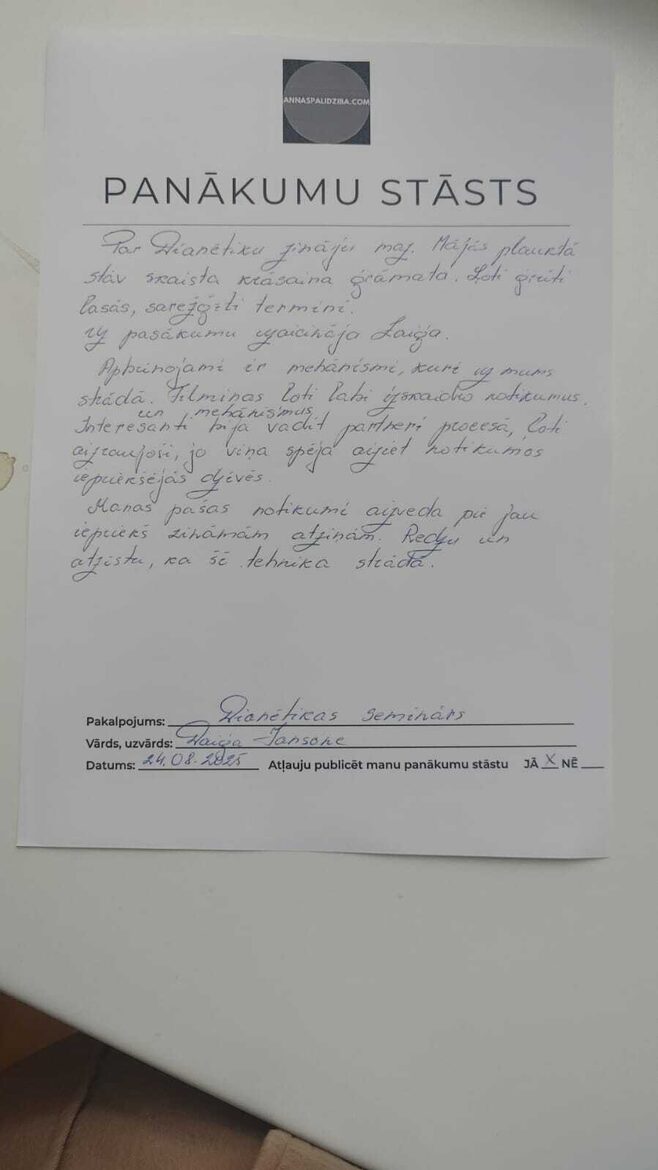 ANNASPALIDZIBA.COM
PANĀKUMU STĀSTS
Par Dianētiku zināju maz. Mājās plauktā
stāv skaista krāsaina grāmata. Ļoti grūti
lasās, sarežģīti termini.
Uz pasākumu uzaicināja Laiga.
Apbrīnojami ir mehānismi, kuri uz mums
strādā. Filmiņas ļoti labi izskaidro notikumus
un mehānismus.
Interesanti bija vadīt partneri procesā, ļoti
aizraujoši, jo viņa spēja aiziet notikumos
iepriekšējās dzīvēs.
Manas pašas notikumi aizveda pie jau
iepriekš zināmām atziņām. Redzu un
atzīstu, ka šī tehnika strādā.
Pakalpojums: Dianētikas seminārs
Vārds, uzvārds: Daiga Jansone
Datums: 24.08.2025 Atļauju publicēt manu panākumu stāstu JĀ X NĒ